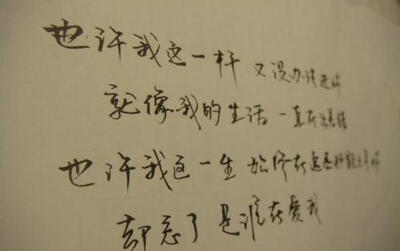 也许我这一杆 又没办法进球
就像我的生活 一直在出差错
也许我这一生 始终在追逐那颗九号球
却忘了 是谁在爱我